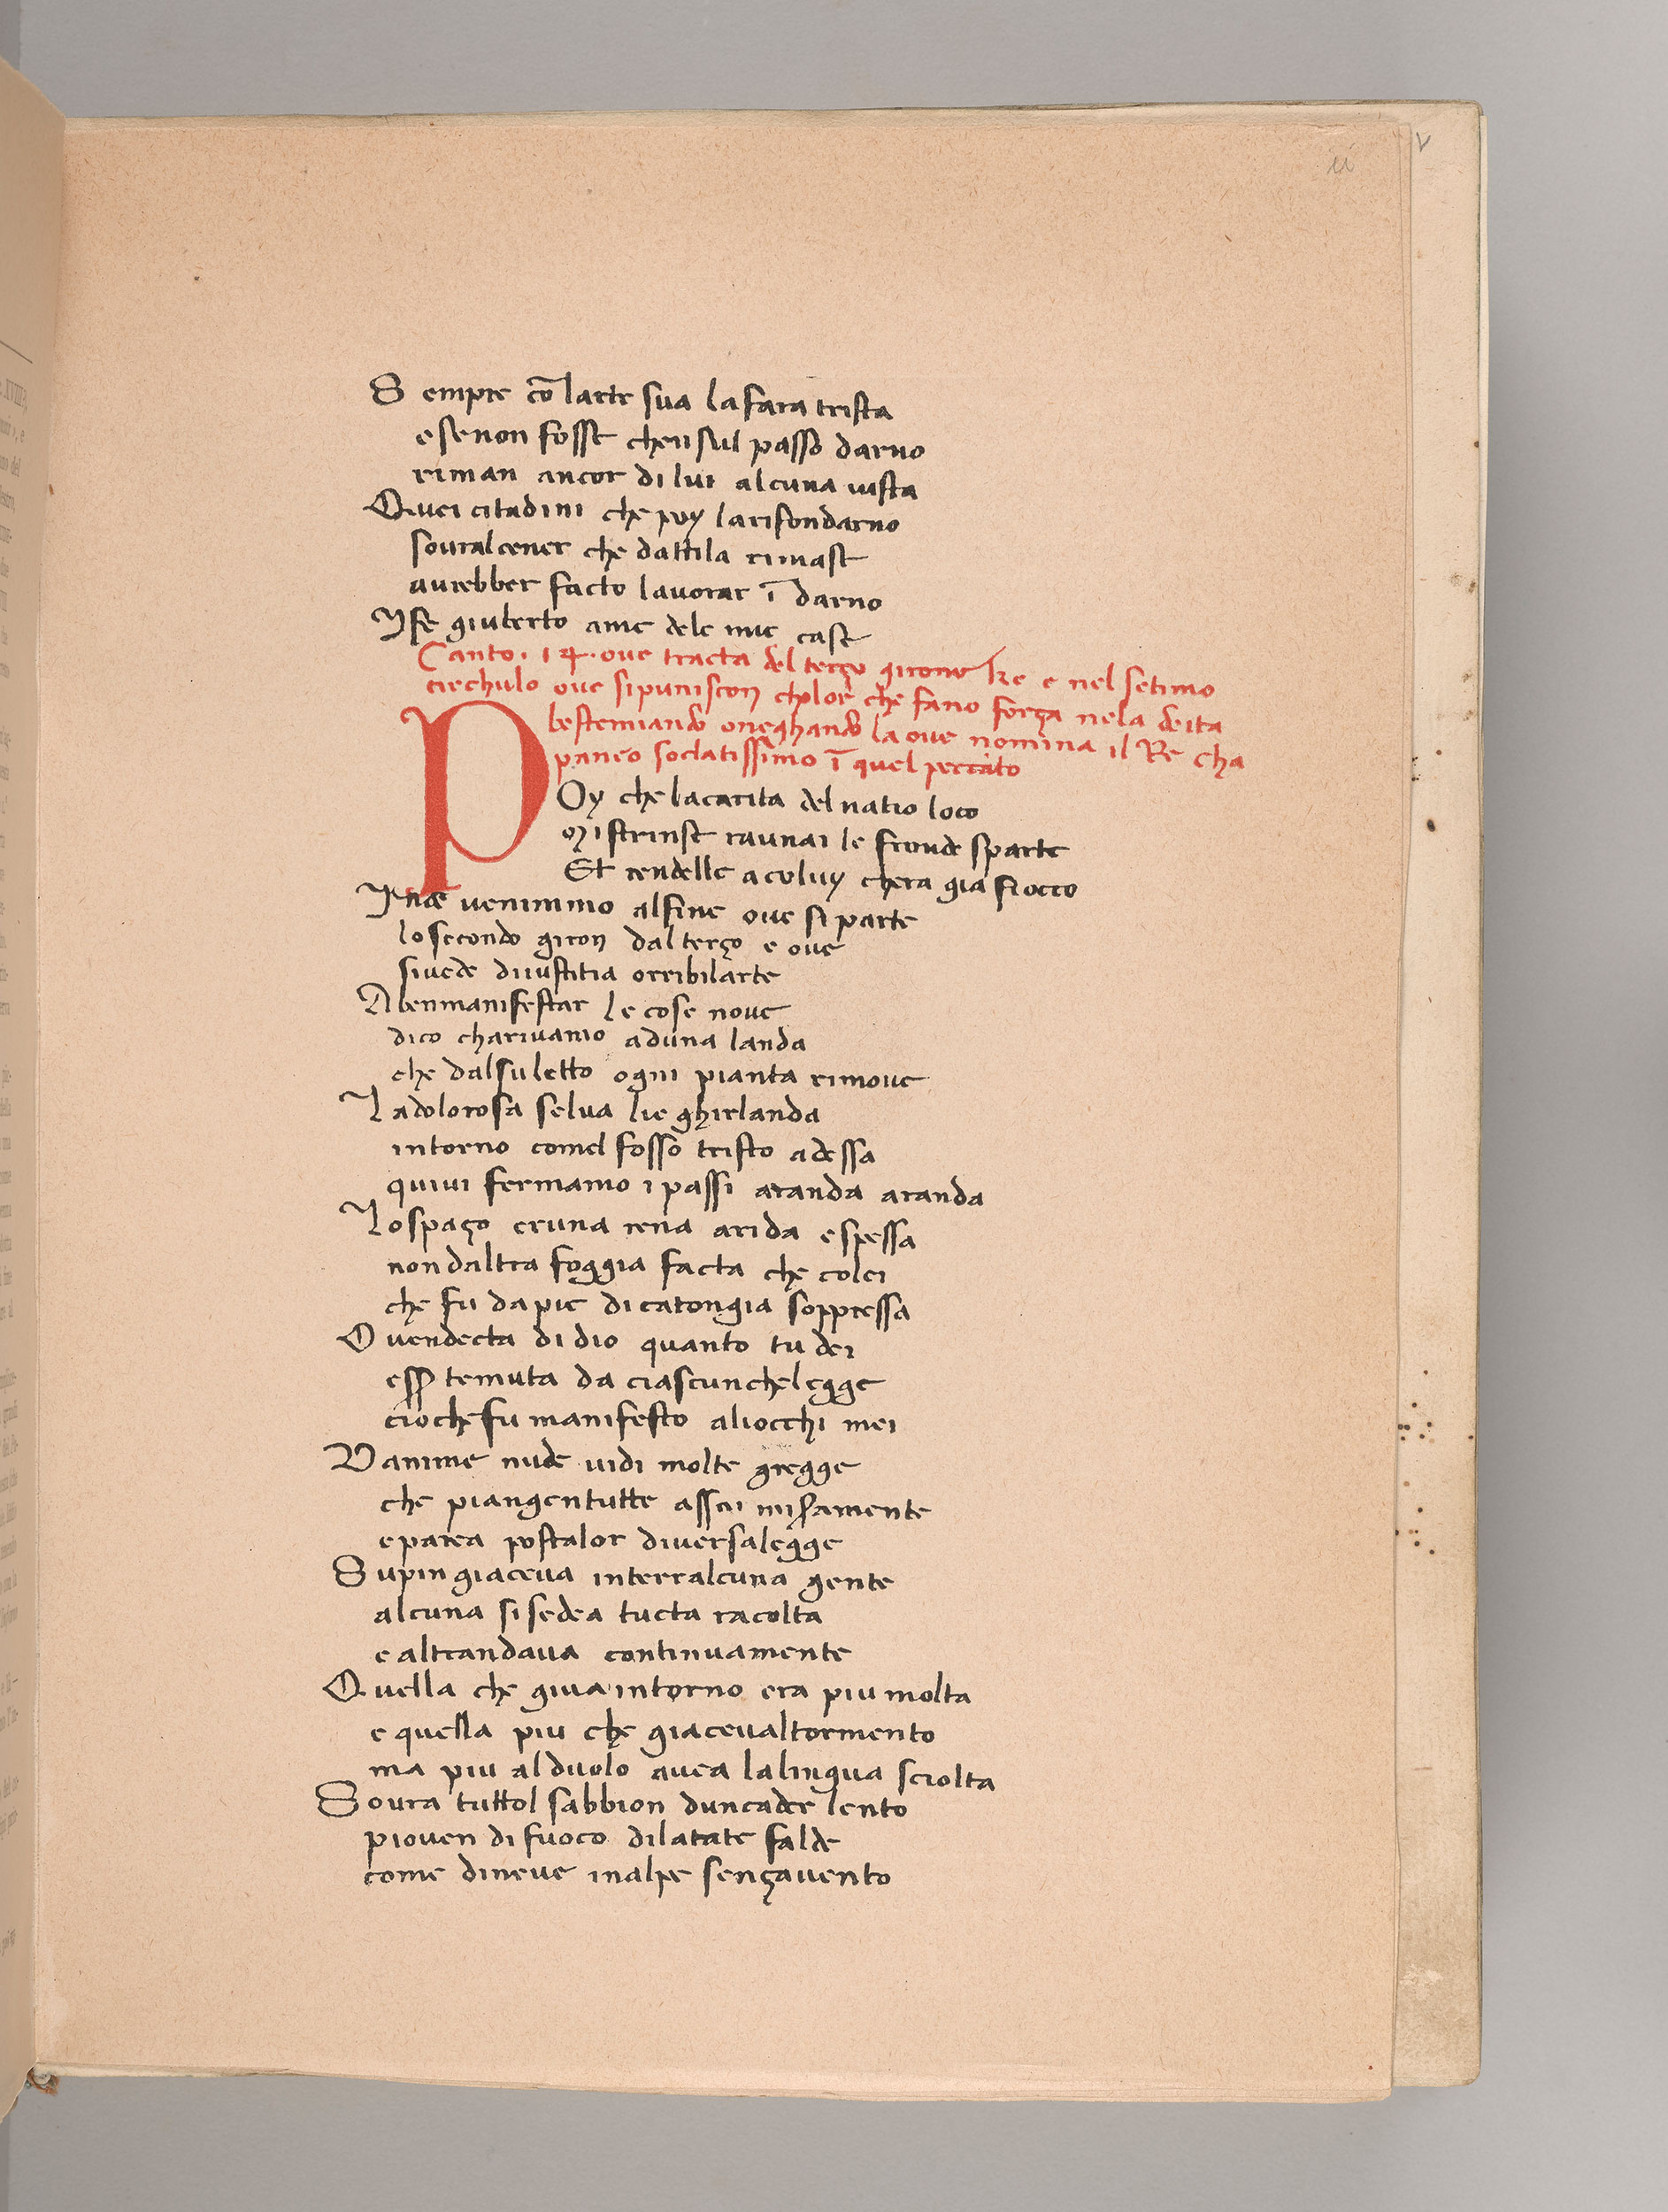 Sempre cō larte sua la fara trista
e se non fosse chen sul passo darno
riman ancor di lui alcuna uista
Quei citadini che poy la rifondarno
soural cener che dattila rimase
aurebber facto lauorar ī darno
Y fe giuberto ame dele mie case
Canto . 14 . oue tracta del terço girone e nel setimo
circhulo oue si puniscon choloř che fano força nela deita
bestemiando oneghando la oue nomina il Re cha
paneo sociatissimo ī quel peccato
POy che la carita del natio loco
Mi strinse raunai le fronde sparte
Et rendelle a coluy chera gia fiocco
Inde uenimmo al fine oue si parte
lo secondo giron dal terço e oue
si uede di iustitia orribil arte
A ben manifestar le cose noue
dico charivamo ad una landa
che dal su letto ogni pianta rimoue
La dolorosa selua lie ghirlanda
intorno comel fosso tristo ad essa
quiui fermamo i passi aranda aranda
Lo spaço eruna rena arida e spessa
non daltra foggia facta che colei
che fu da pie di caton gia soppressa
O uendecta di dio quanto tu dei
esser temuta da ciascun che legge
cio che fu manifesto ali occhi mei
Danime nude uidi molte gregge
che piangen tutte assai miseramente
e parea posta lor diuersa legge
Supin giaceua in terra alcuna gente
alcuna si sedea tucta racolta
e altrandaua continuamente
Quella che giua intorno era piu molta
e quella piu che giaceua al tormento
ma piu al duolo auea la lingua sciolta
Soura tuttol sabbion dun cader lento
piouen di fuoco dilatate falde
come di neue in alpe sença uento